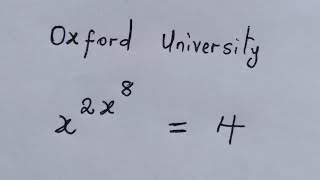 Oxford University
x^{2x^8} = 4